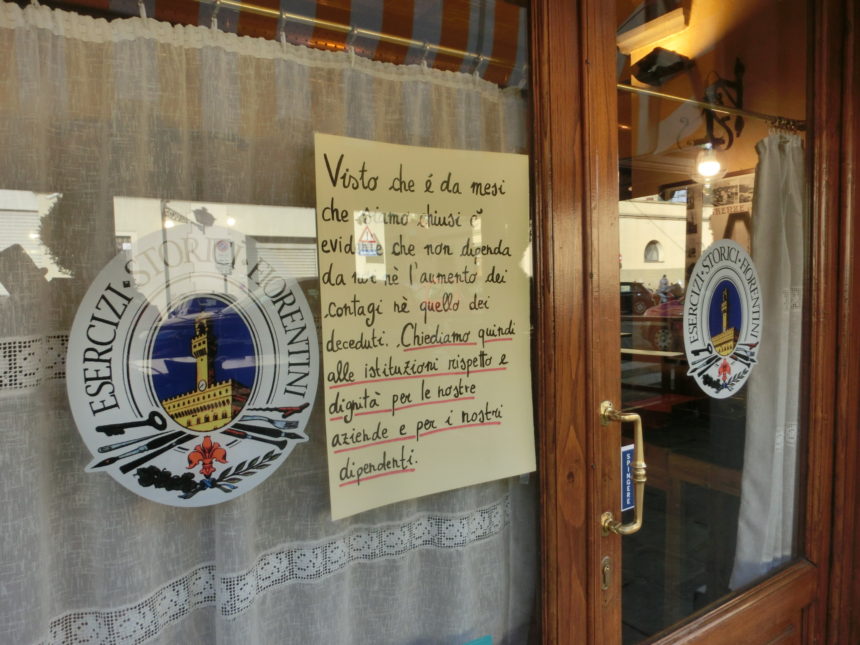 Visto che é da mesi
che siamo chiusi é
evidente che non dipenda
da noi nè l'aumento dei
contagi nè quello dei
deceduti. Chiediamo quindi
alle istituzioni rispetto e
dignità per le nostre
aziende e per i nostri
dipendenti.
ESERCIZI·STORICI·FIORENTINI
SPINGERE
ESERCIZI·STORICI·FIORENTINI